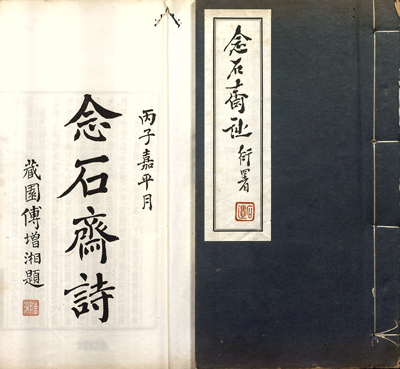 念石齋詩
衍署
丙子嘉平月
念石齋詩
藏園傅增湘題